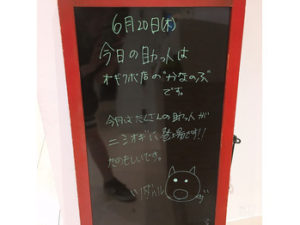 6月20日(木)
今日の助っ人は
オギクボ店の"かなのぶ"
です。
今月はたくさんの助っ人が
ニシオギに登場です!!
たのもしいです。